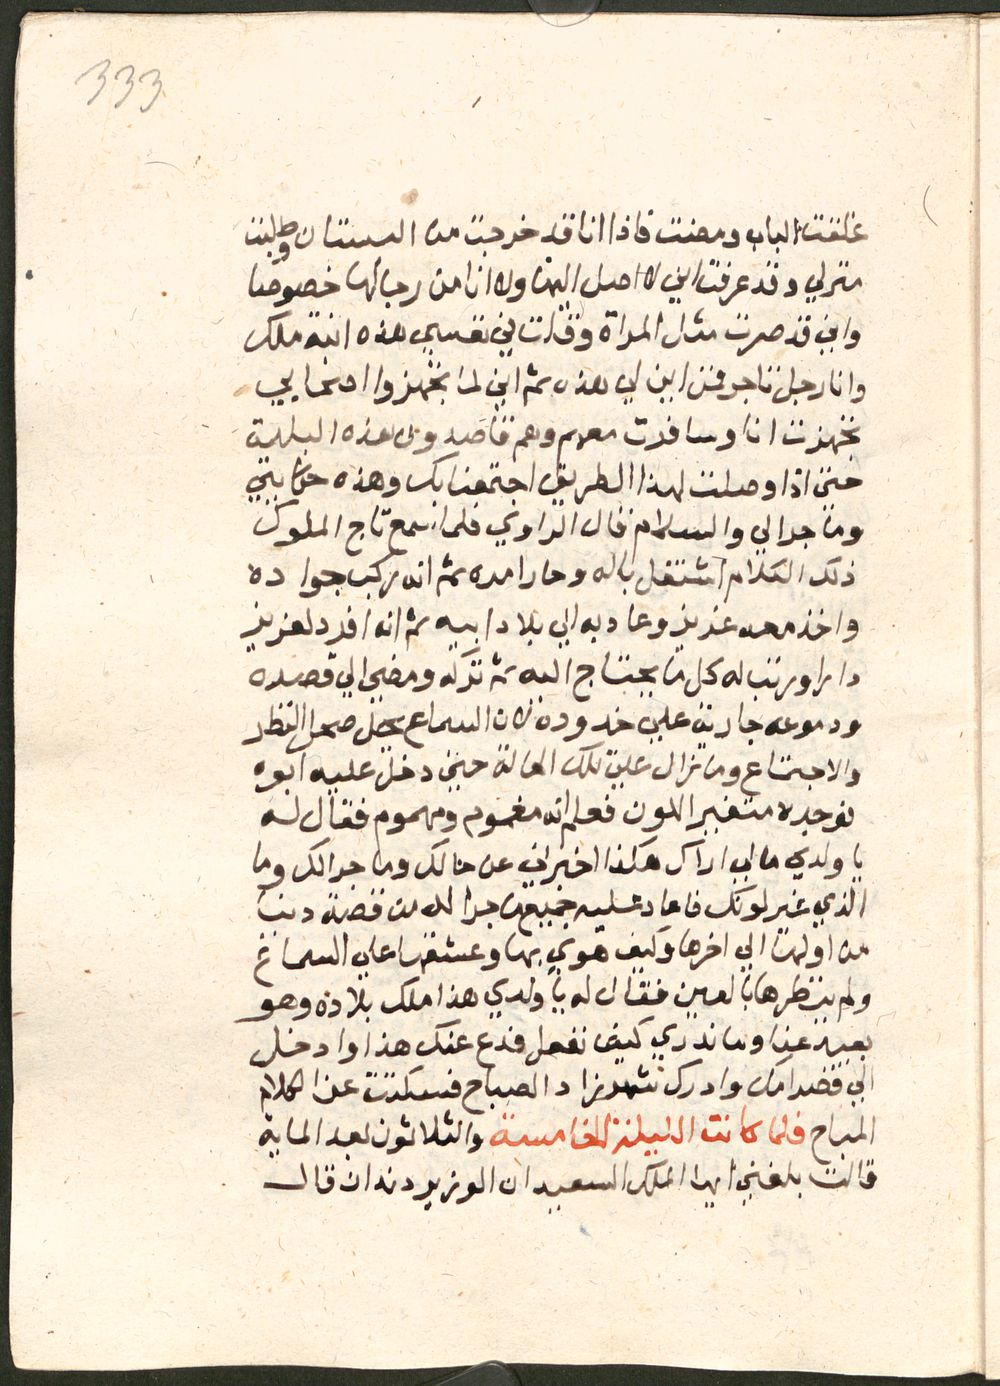 333
غلقت الباب ومضت فاذا انا قد خرجت من البستان وطلبت
منزلي وقد عرفت اني لا اصل اليها ولا انا من رجالها خصوصا
واني قد صرت مثل المراة وقلت في نفسي هذه ابنة ملك
وانا رجل تاجر فمن اين لي هذه ثم اني لما تجهزوا اصحابي
تجهزت انا وسافرت معهم وهم قاصدون هذه البلدة
حتى اذا وصلت لهذا الطريق اجتمعنا بك وهذه حكايتي
وما جرا لي والسلام قال الراوي فلما سمع تاج الملوك
ذلك الكلام اشتغل باله وحار امره ثم انه ركب جواده
واخذ معه عزيز وعاد به الي بلاد ابيه ثم انه افرد لعزيز
دارا ورتب له كل ما يحتاج اليه ثم تركه ومضي الي قصره
ودموعه جارية علي خدوده لان السماع يحل محل النظر
والاجتماع وما زال علي تلك الحالة حتي دخل عليه ابوه
فوجده متغير اللون فعلم انه مغموم ومهموم فقال له
يا ولدي مالي اراك هكذا اخبرني عن حالك وما جرا لك وما
الذي غير لونك فاعاد عليه جميع ما جرا له من قصة دنيا
من اولها الي اخرها وكيف هوي بها وعشقها علي السماع
ولم ينظرها بالعين فقال له يا ولدي هذا ملك بلاده وهو
بعيد عنا وما ندري كيف نفعل فدع عنك هذا وادخل
الي قصر امك وادرك شهرزاد الصباح فسكتت عن الكلام
المباح فلما كانت الليلة الخامسة والثلاثون بعد الماية
قالت بلغني ايها الملك السعيد ان الوزير دندان قال